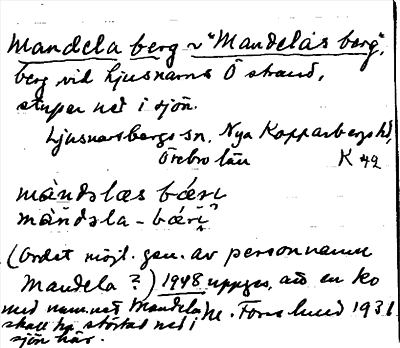 Mandela berg ~ "Mandelas berg",
berg vid Ljusnarns Ö strand,
stupar ned i sjön.
Ljusnarsbergs sn, Nya Kopparbergs hd,
Örebro län K 42
(Ordet möjl. gen. av personnamn
Mandela?) 1948 uppges, att en ko
med namnet Mandela
skall ha störtat ned i
sjön här.
M. Forslund 1931